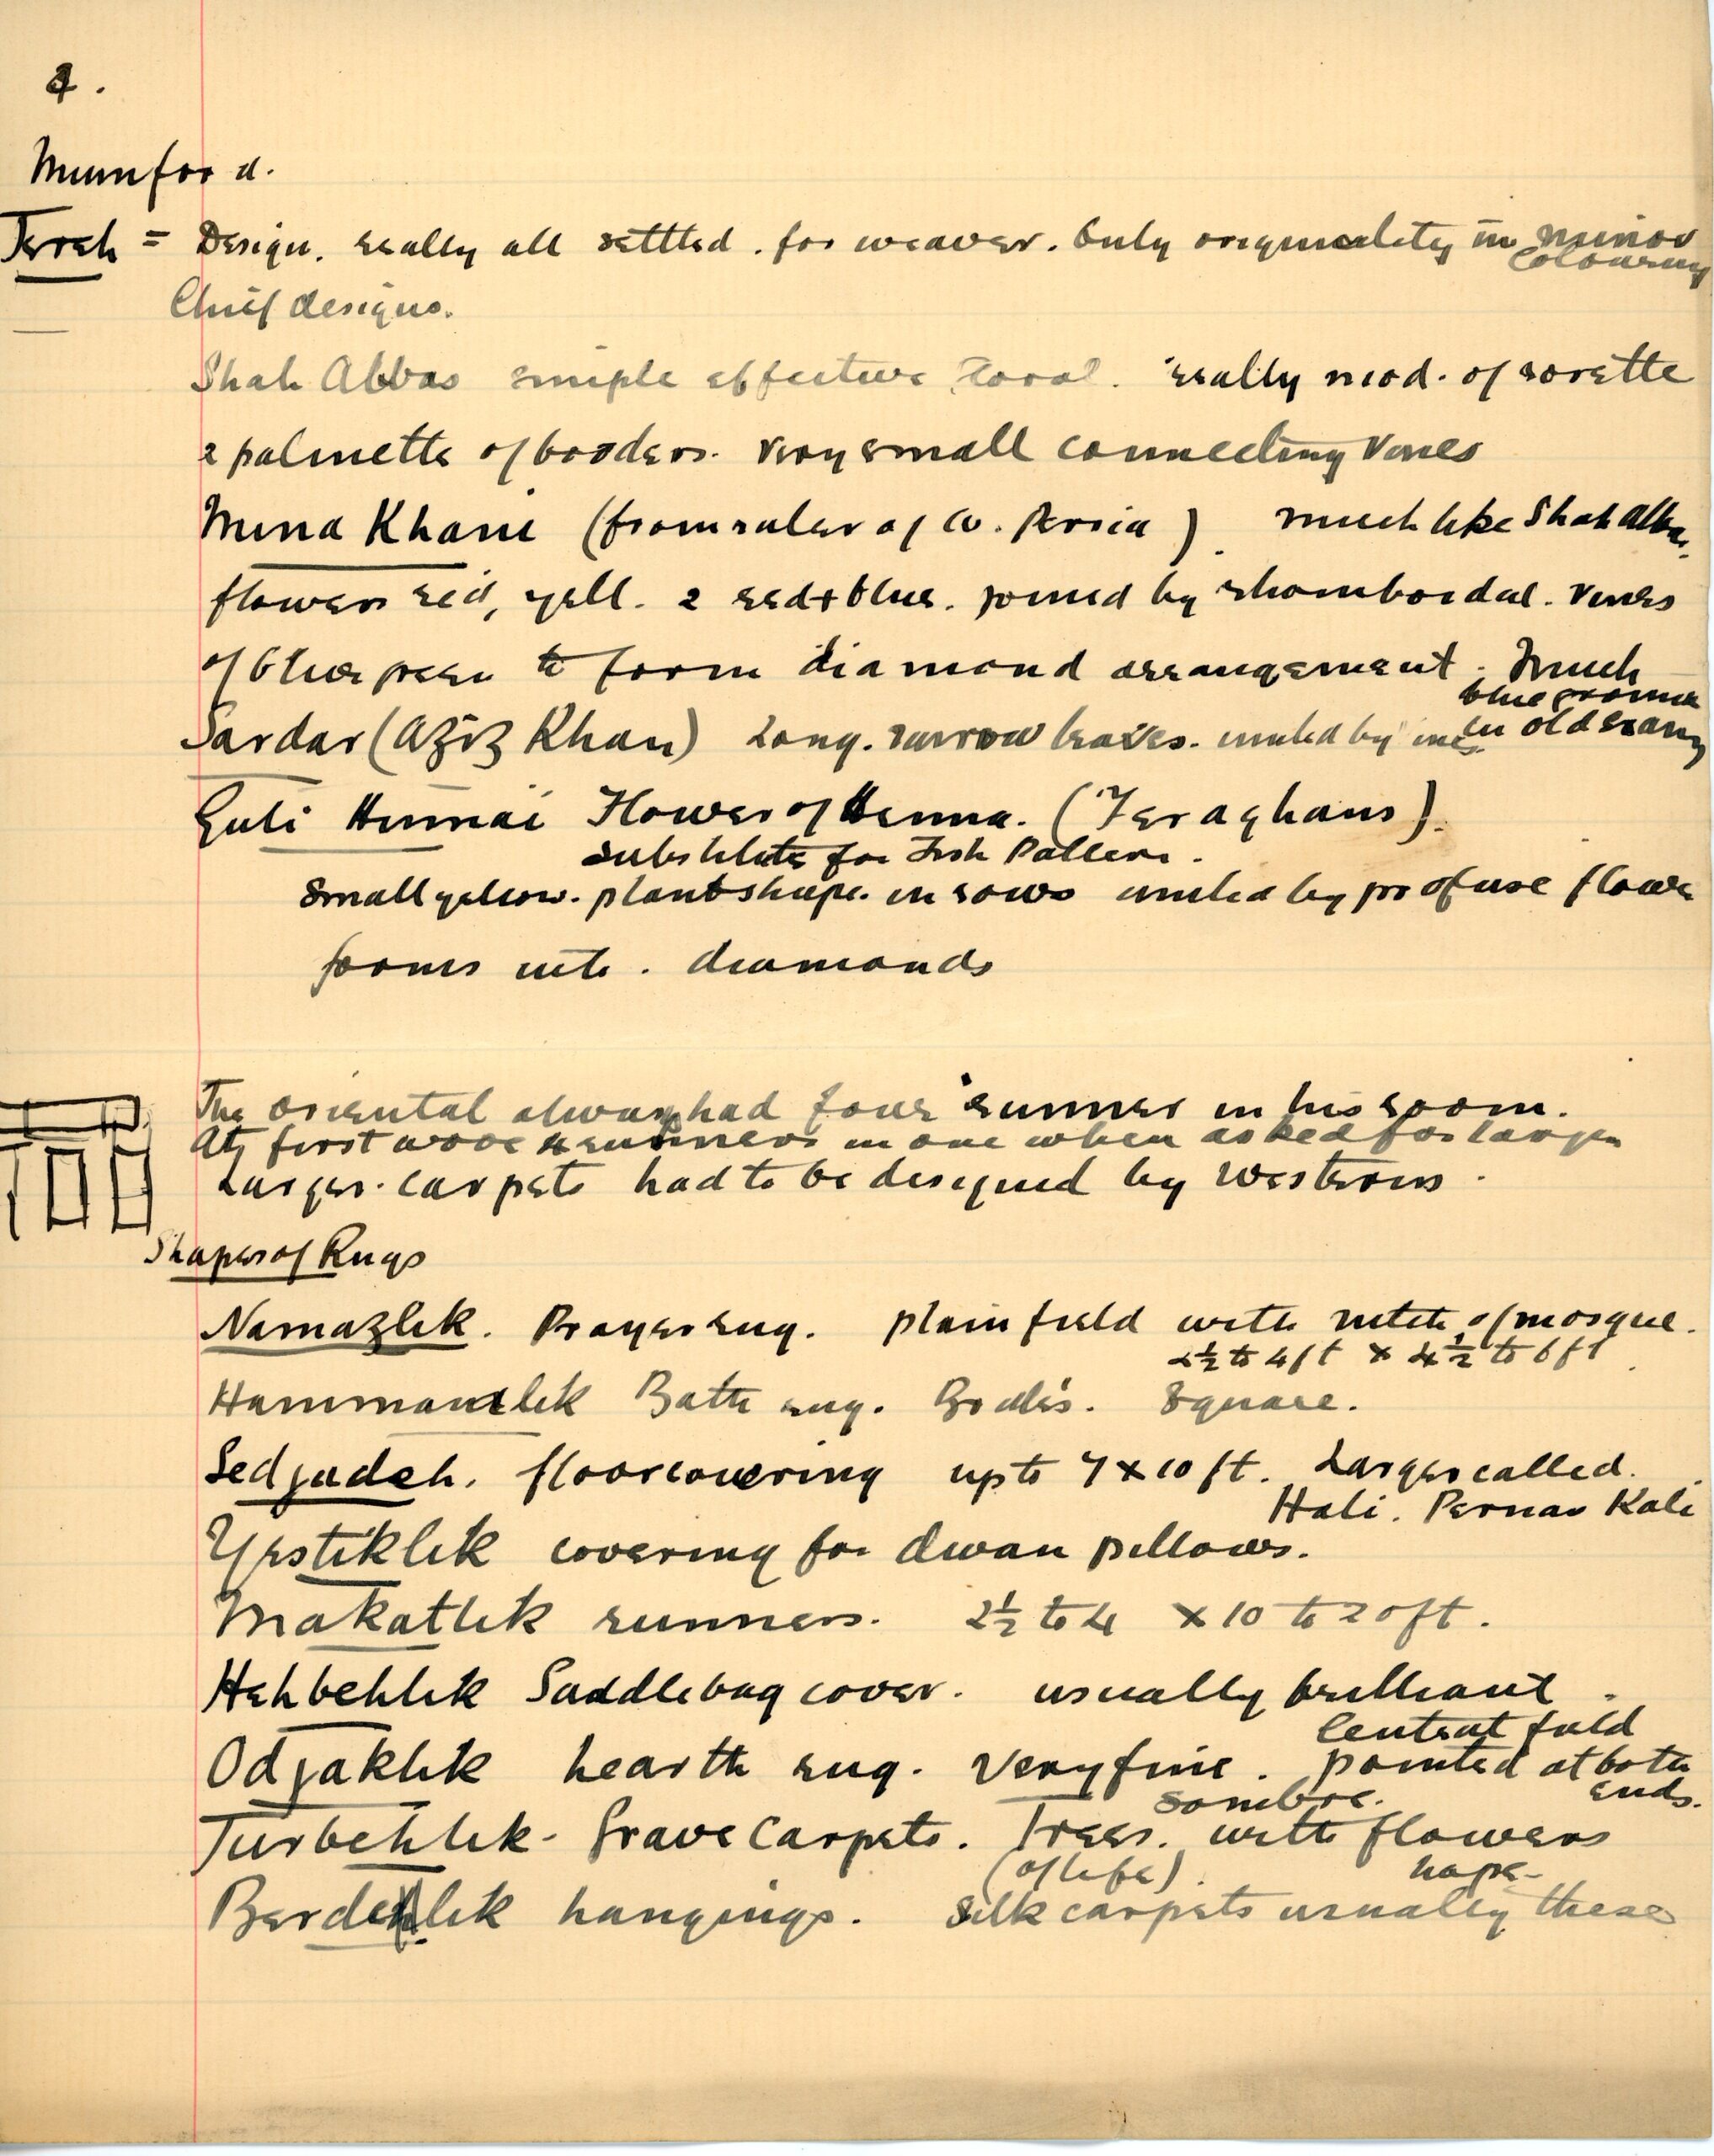 4.
Mumford.
Terah = Design. really all settled. for weaver. Only originality in minor
colouring
Chief designs.
Shah Abbas simple effective floral. really mod. of rosette
& palmette of borders. very small connecting vines
Mina Khani (from ruler of W. Persia). much like Shah Abbas.
flowers red, yell. & red + blue. joined by rhomboidal. vines
of blue green to form diamond arrangement. Much
blue ground
in old exam
Sardar (Aziz Khan) Long. narrow leaves. united by vines.
Guli Hinnai Flower of Henna. (Feraghans).
Substitute for Fish Pattern.
Small yellow. plant shape. in rows united by profuse flower
forms into. diamonds
The oriental always had four runners in his room.
At first wove 4 runners in one when asked for larger
Larger. carpets had to be designed by Westerns.
Shapes of Rugs
Namazlik. Prayer rug. plain field with niche of mosque.
2½ to 4 ft × 4½ to 6 ft
Hammamlik Bath rug. Square.
Sedjadeh. floorcovering up to 7 × 10 ft. Larger called.
Hali. Persian Kali
Yestiklik covering for divan pillows.
Makatlik runners. 2½ to 4 × 10 to 20 ft.
Hehbehlik Saddlebag cover. usually brilliant.
Central field
Odjaklik hearth rug. Very fine. pointed at both
ends.
sombre.
Turbehlik - Grave Carpets. Trees. with flowers
(of life). hope -
Berdelik hangings. Silk carpets usually these